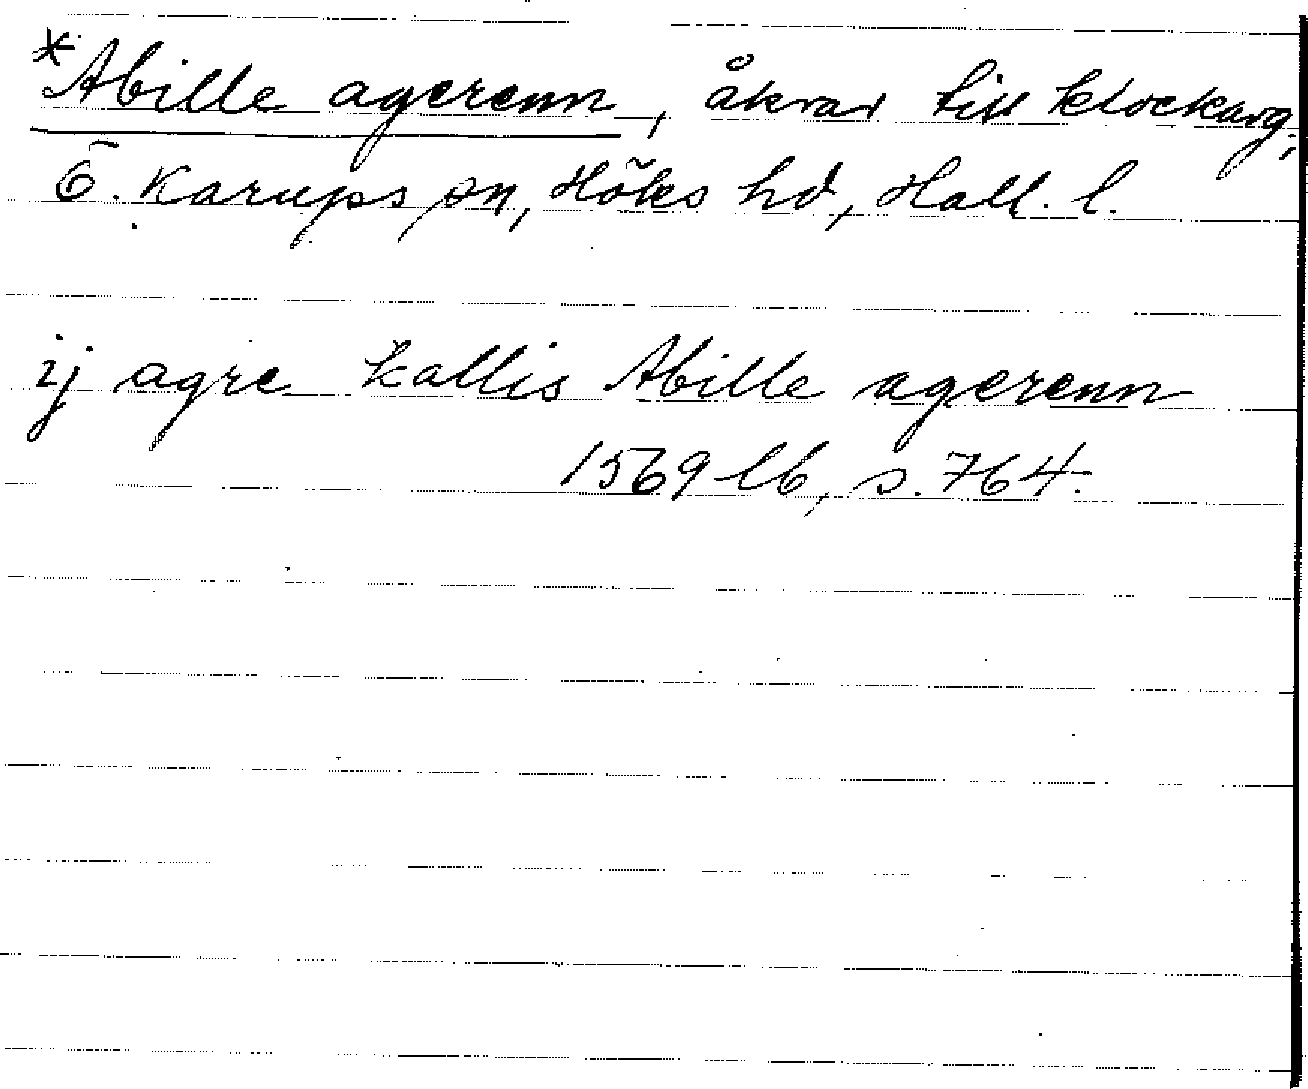 *Abille agerenn, åkrar till klockarg.,
Ö. Karups sn, Höks hd, Hall. l.
ij agre kallis Abille agerenn
1569 lb, s. 764.